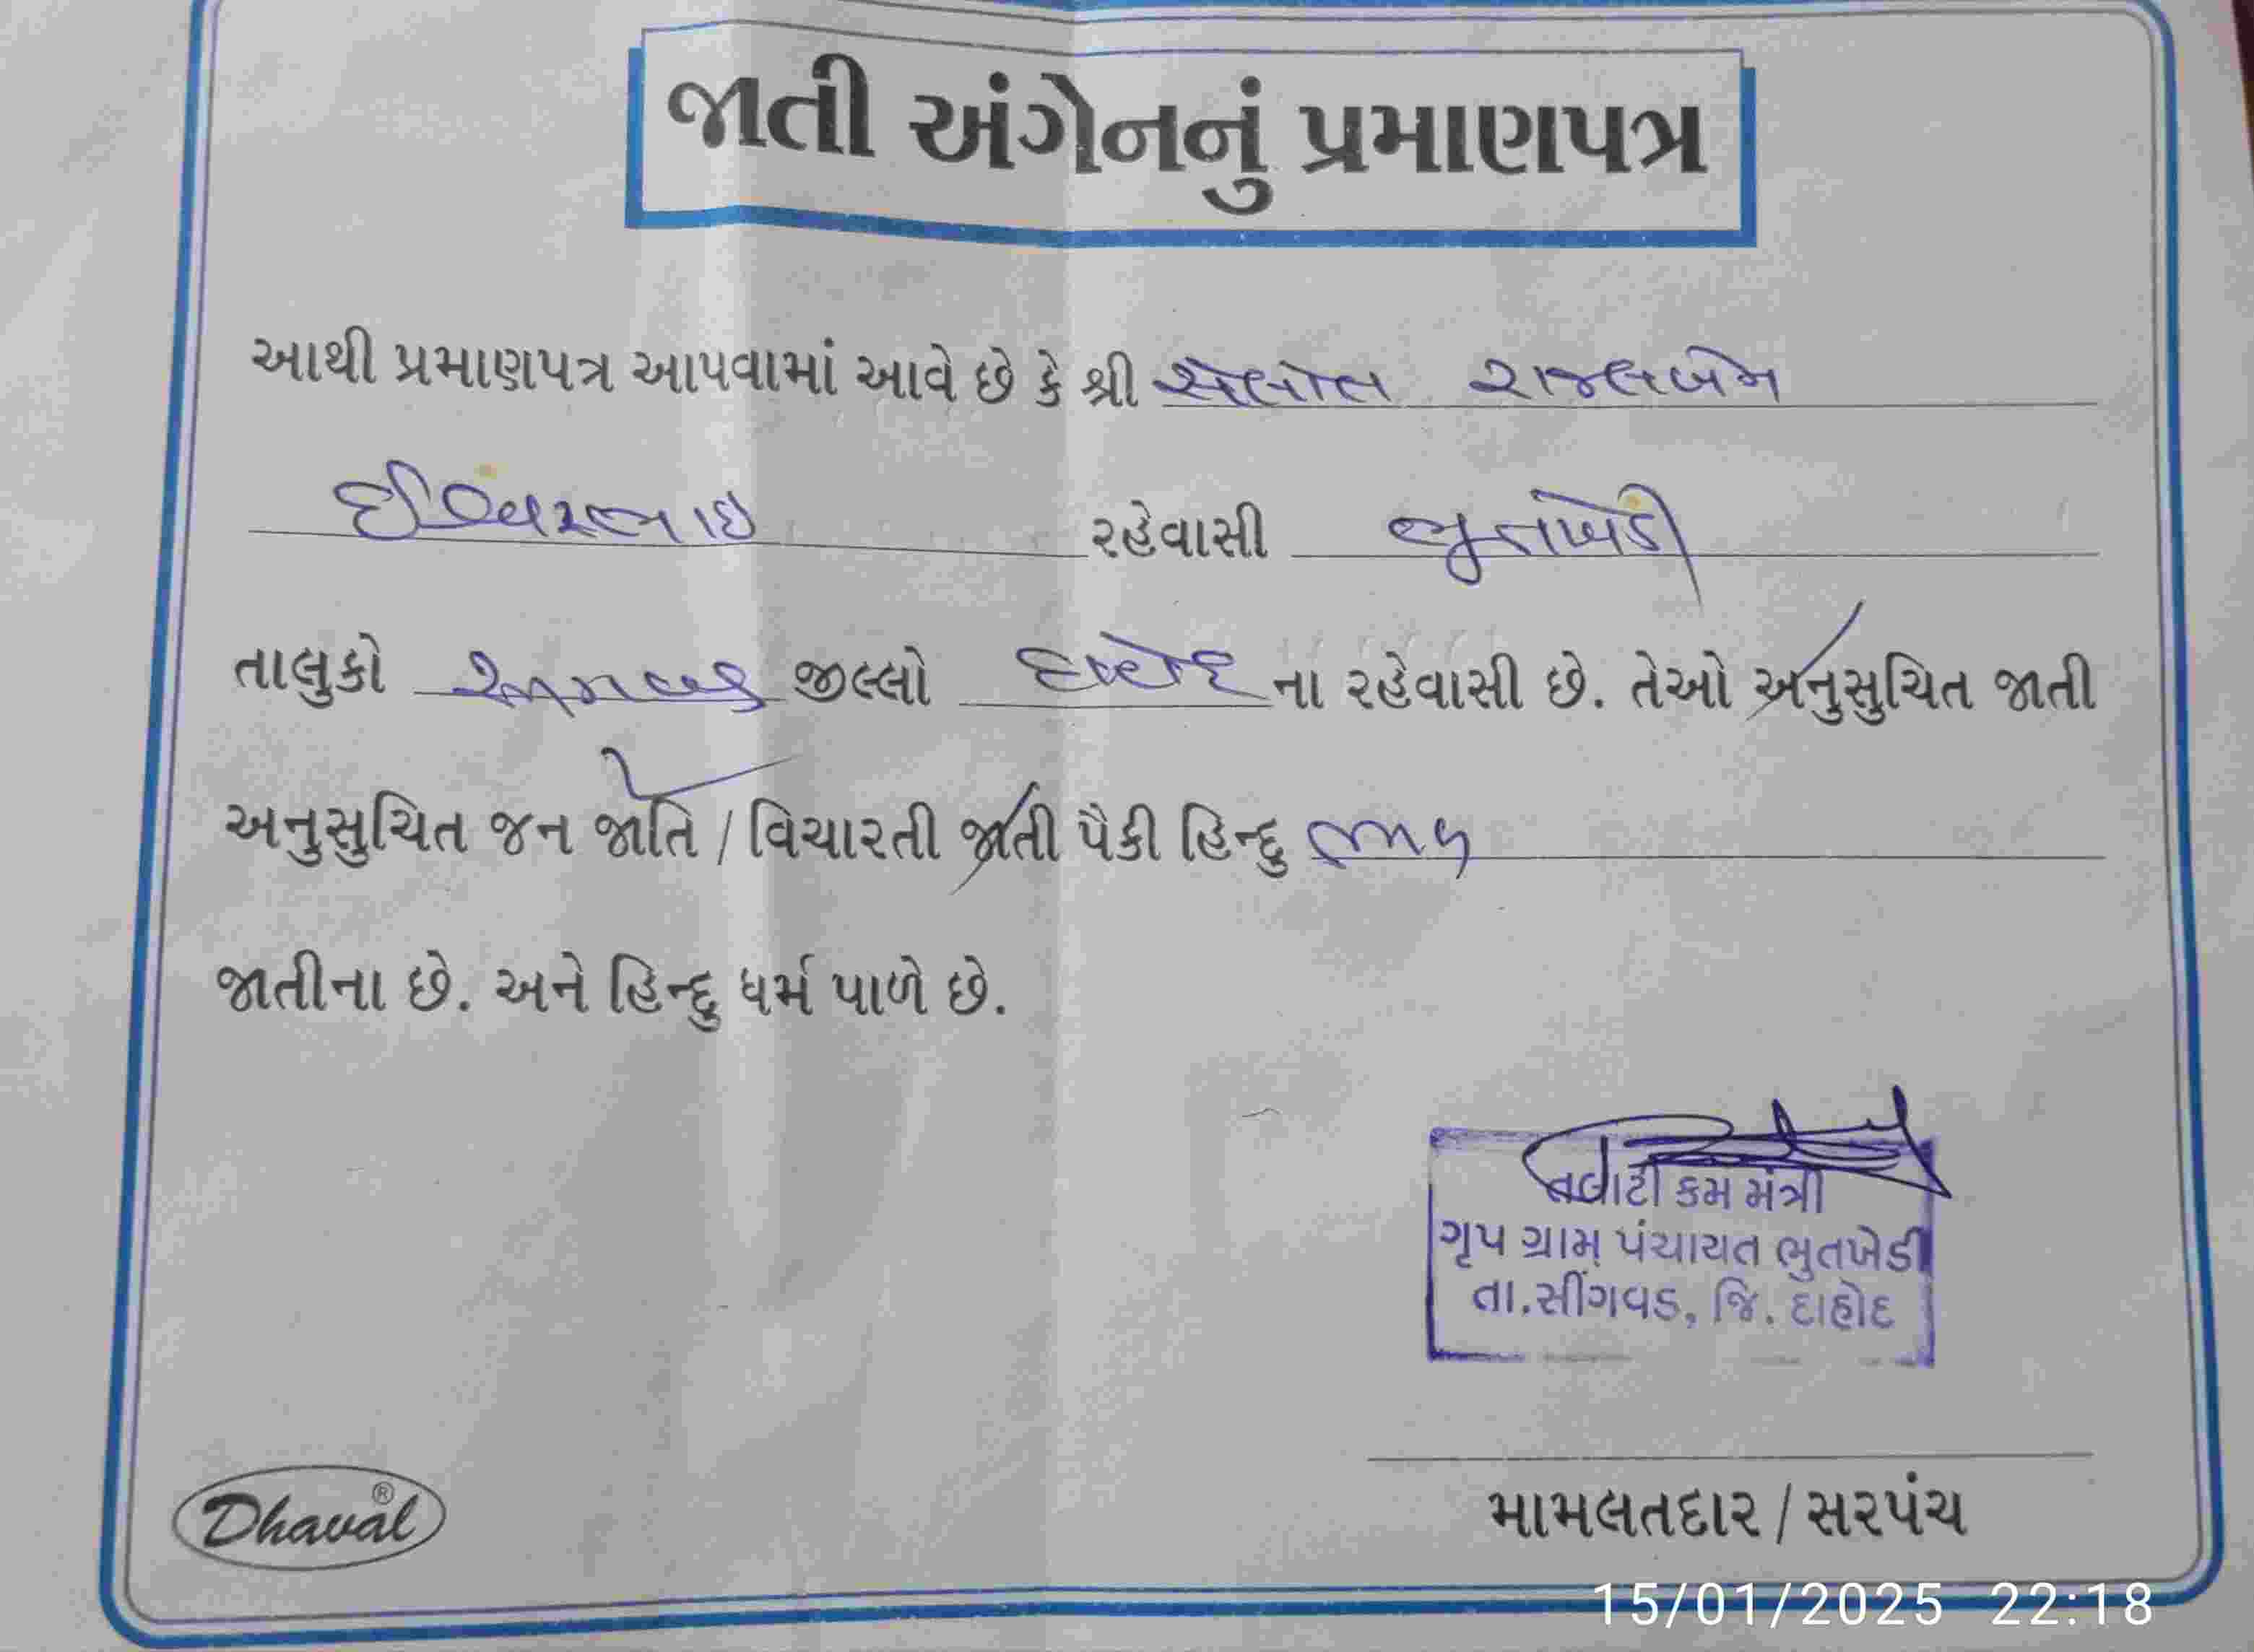 જાતી અંગેનનું પ્રમાણપત્ર
આથી પ્રમાણપત્ર આપવામાં આવે છે કે શ્રી સેલોત રાજલબેન
ઈશ્વરભાઇ રહેવાસી ભુતખેડી
તાલુકો જીલ્લો દાહોદ ના રહેવાસી છે. તેઓ અનુસુચિત જાતી
અનુસુચિત જન જાતિ / વિચારતી જાતી પૈકી હિન્દુ
જાતીના છે. અને હિન્દુ ધર્મ પાળે છે.
તલાટી કમ મંત્રી
ગૃપ ગ્રામ પંચાયત ભુતખેડી
તા.સીંગવડ, જિ. દાહોદ
મામલતદાર / સરપંચ
Dhaval®
15/01/2025 22:18